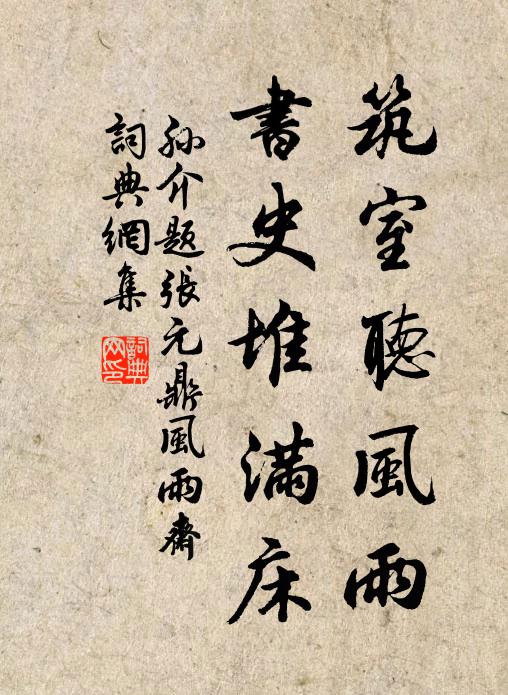 筑室聽風雨
書史堆滿床
孫介題張元鼎風雨齋
詞典網集
詞典
网印